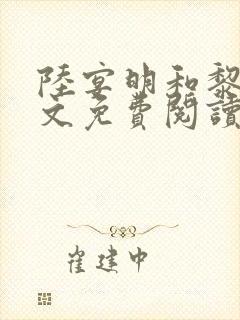 陸宴明和黎
文免費閱讀
崔建中